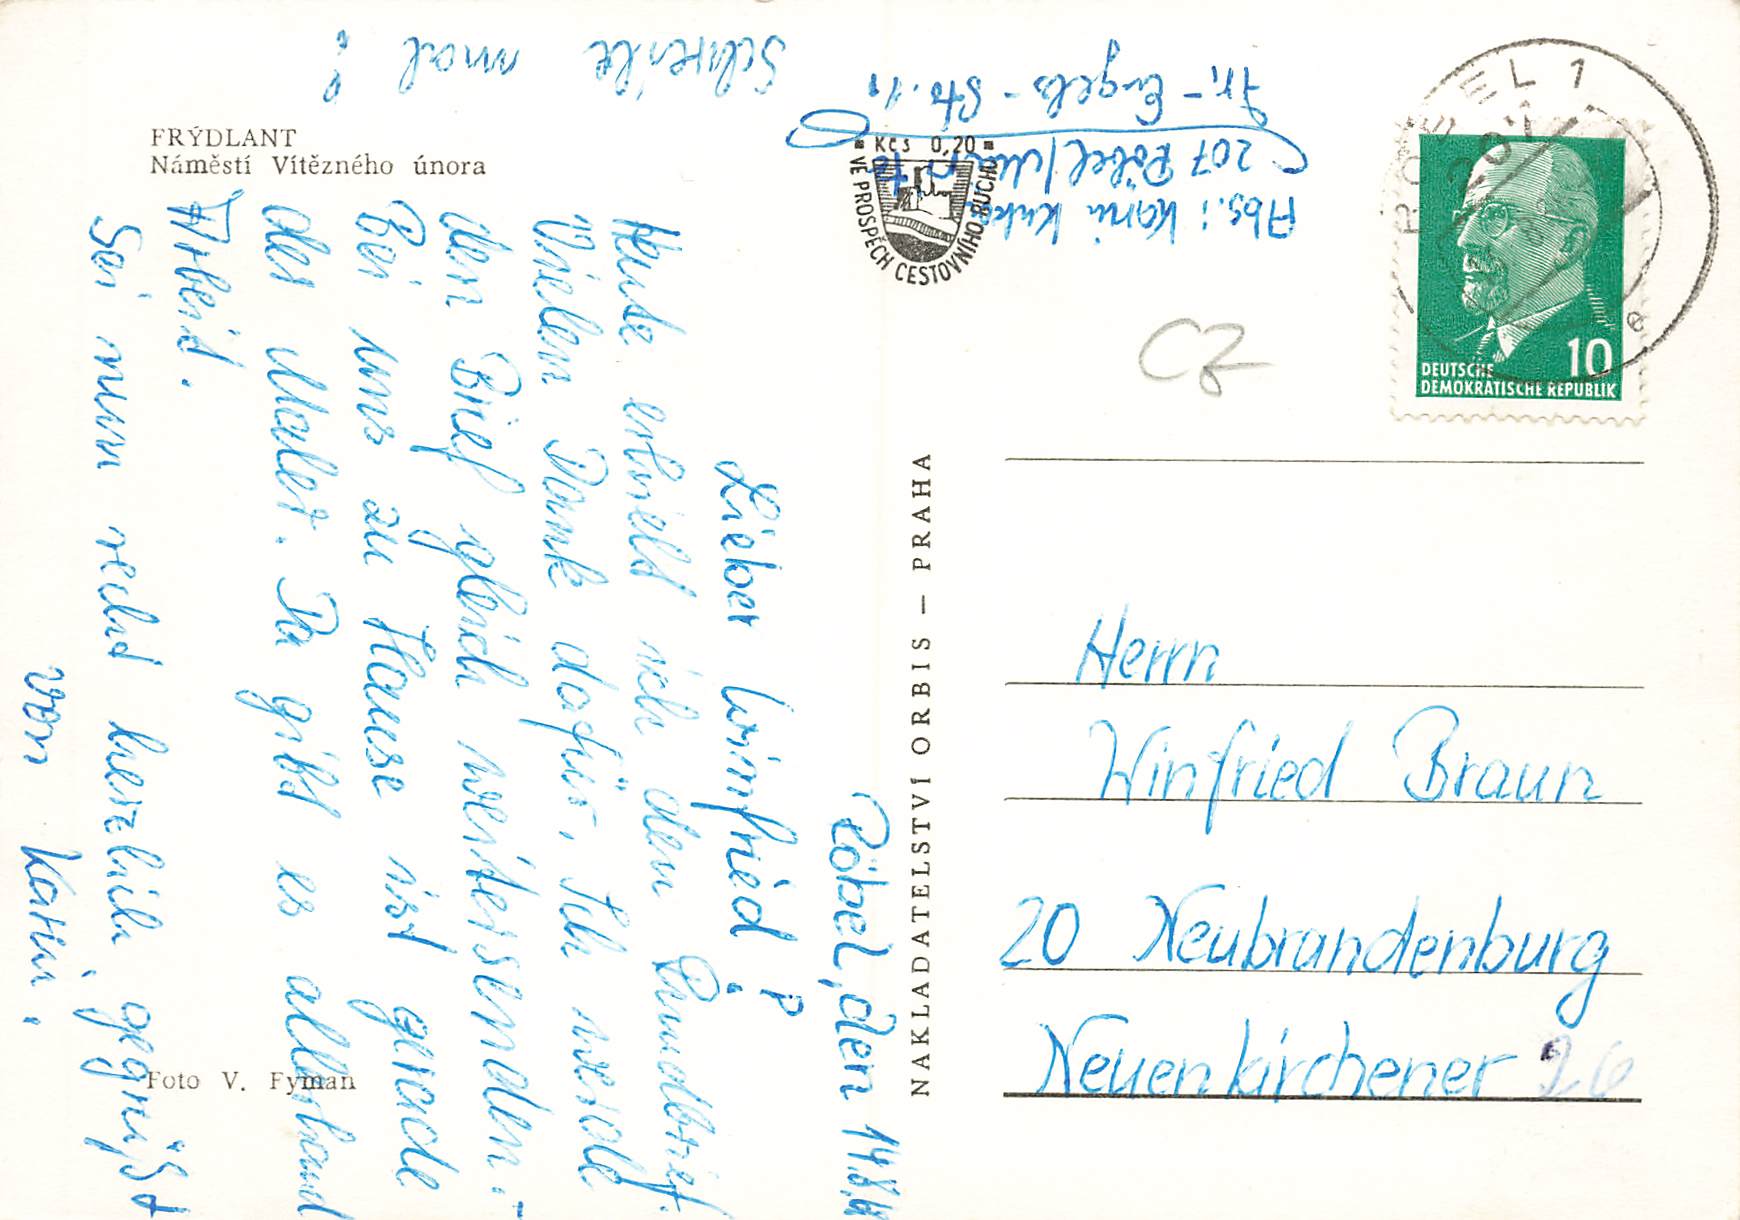 FRÝDLANT
Náměstí Vítězného února
Röbel, den 14.8.
Lieber Winfried!
Heute erhielt ich den Rundbrief.
Vielen Dank dafür. Ich werde
den Brief gleich weitersenden.-
Bei uns zu Hause ist gerade
der Maler. Da gibt es allerhand
Arbeit.
Sei nun recht herzlich gegrüßt
von Karin.
Schreibe mal!
Foto V. Fyman
NAKLADATELSTVÍ ORBIS — PRAHA
Kčs 0,20
VE PROSPĚCH CESTOVNÍHO RUCHU
Abs.: Karin
207 Röbel/Müritz
Fr.-Engels-Str. 11
CZ
RÖBEL 1
207
DEUTSCHE
DEMOKRATISCHE REPUBLIK
10
Herrn
Winfried Braun
20 Neubrandenburg
Neuenkirchener 26